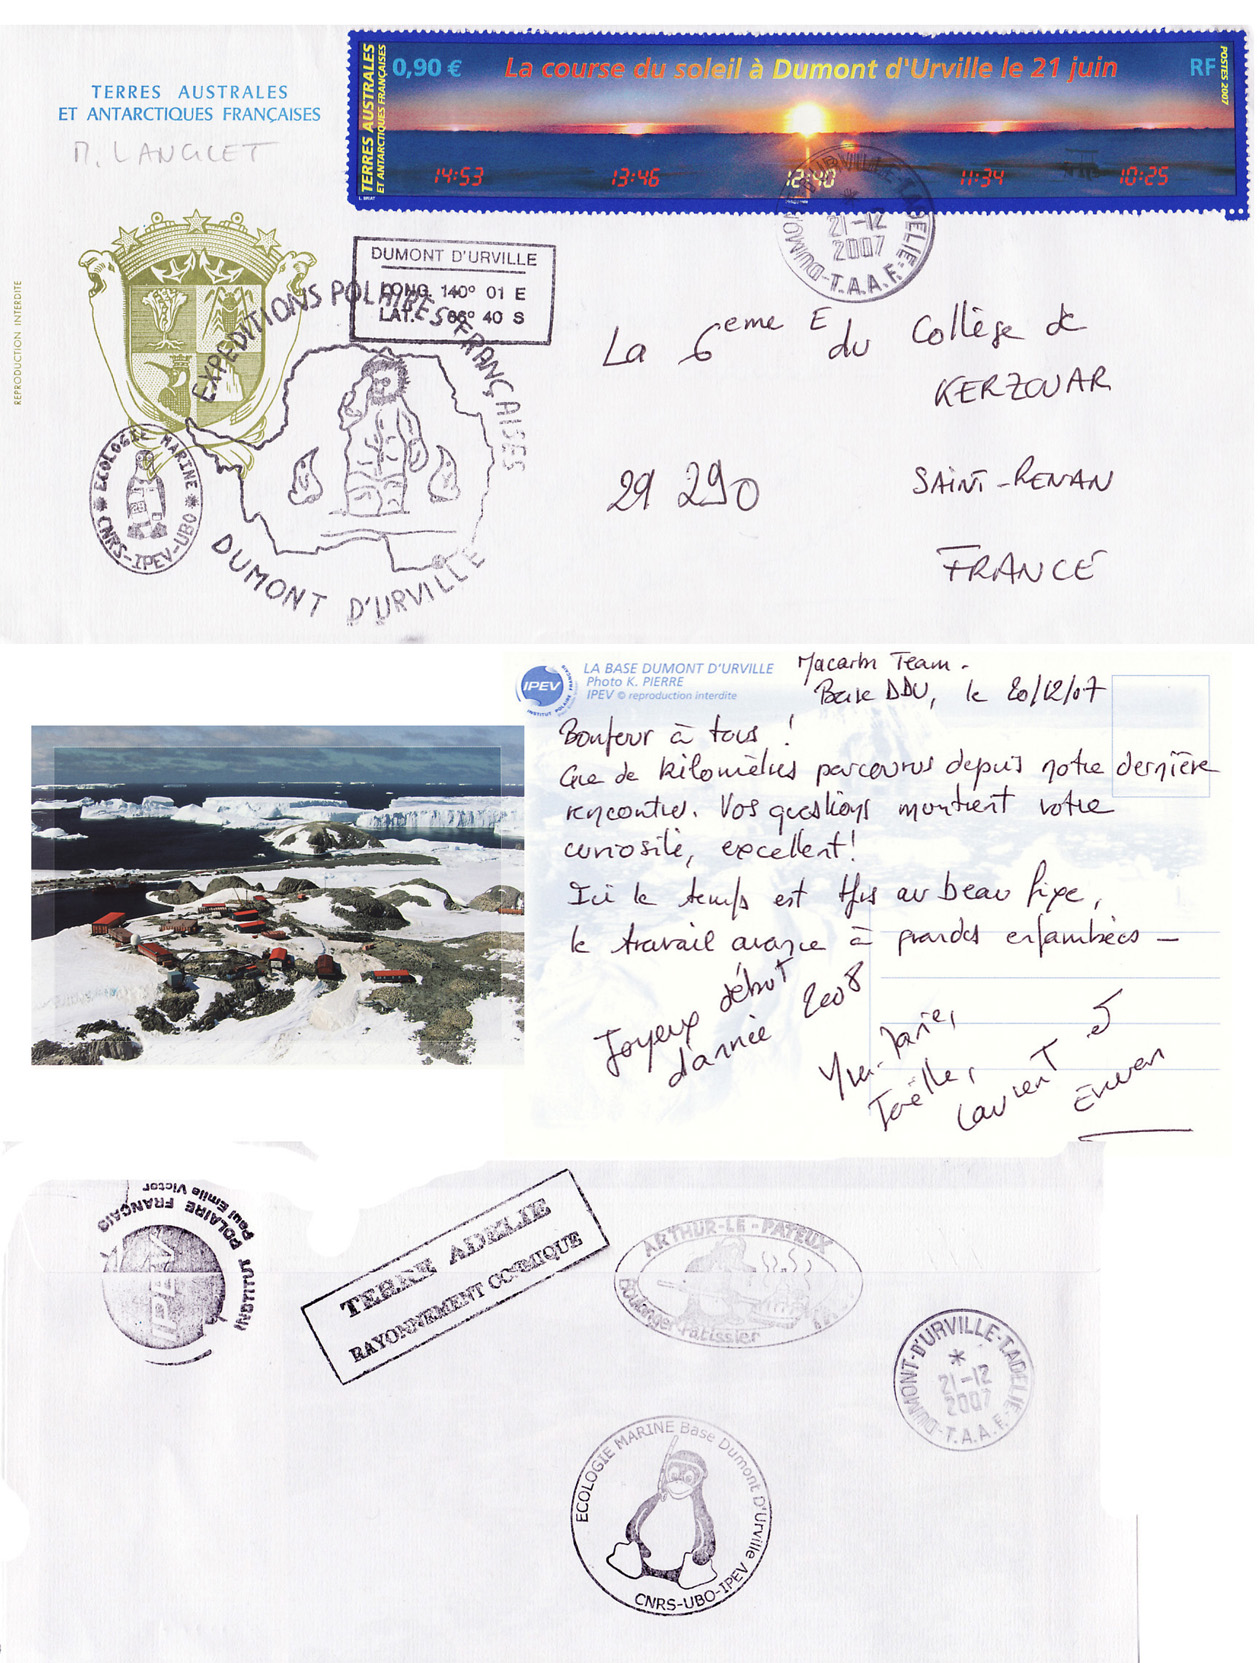 TERRES AUSTRALES
ET ANTARCTIQUES FRANÇAISES
M. LANGLET
REPRODUCTION INTERDITE
TERRES AUSTRALES
ET ANTARCTIQUES FRANÇAISES
0,90 €
La course du soleil à Dumont d'Urville le 21 juin
RF
POSTES 2007
14:53 13:46 12:40 11:34 10:25
L. BRIAT
DUMONT-D'URVILLE-T.ADELIE
*
21-12
2007
-T.A.A.F.-
DUMONT D'URVILLE
LONG. 140° 01 E
LAT. 66° 40 S
EXPEDITIONS POLAIRES FRANÇAISES
DUMONT D'URVILLE
* ECOLOGIE MARINE *
CNRS-IPEV-UBO
La 6eme E du Collège de
KERZOUAR
29 290 SAINT-RENAN
FRANCE
IPEV
INSTITUT POLAIRE FRANÇAIS
LA BASE DUMONT D'URVILLE
Photo K. PIERRE
IPEV © reproduction interdite
Macarbi Team.
Base DDU, le 20/12/07
Bonjour à tous !
Que de kilomètres parcourus depuis notre dernière
rencontre. Vos questions montrent votre
curiosité, excellent!
Ici le temps est tjrs au beau fixe,
le travail avance à grandes enjambées -
Joyeux début
d'année 2008
Yves-Marie,
Joëlle,
Laurent et
Erwan
INSTITUT POLAIRE FRANÇAIS
Paul Emile Victor
IPEV
TERRE ADELIE
RAYONNEMENT COSMIQUE
ARTHUR-LE-PATEUX
Boulanger-Patissier
DUMONT-D'URVILLE-T.ADELIE
*
21-12
2007
-T.A.A.F.-
ECOLOGIE MARINE Base Dumont D'Urville
CNRS-UBO-IPEV